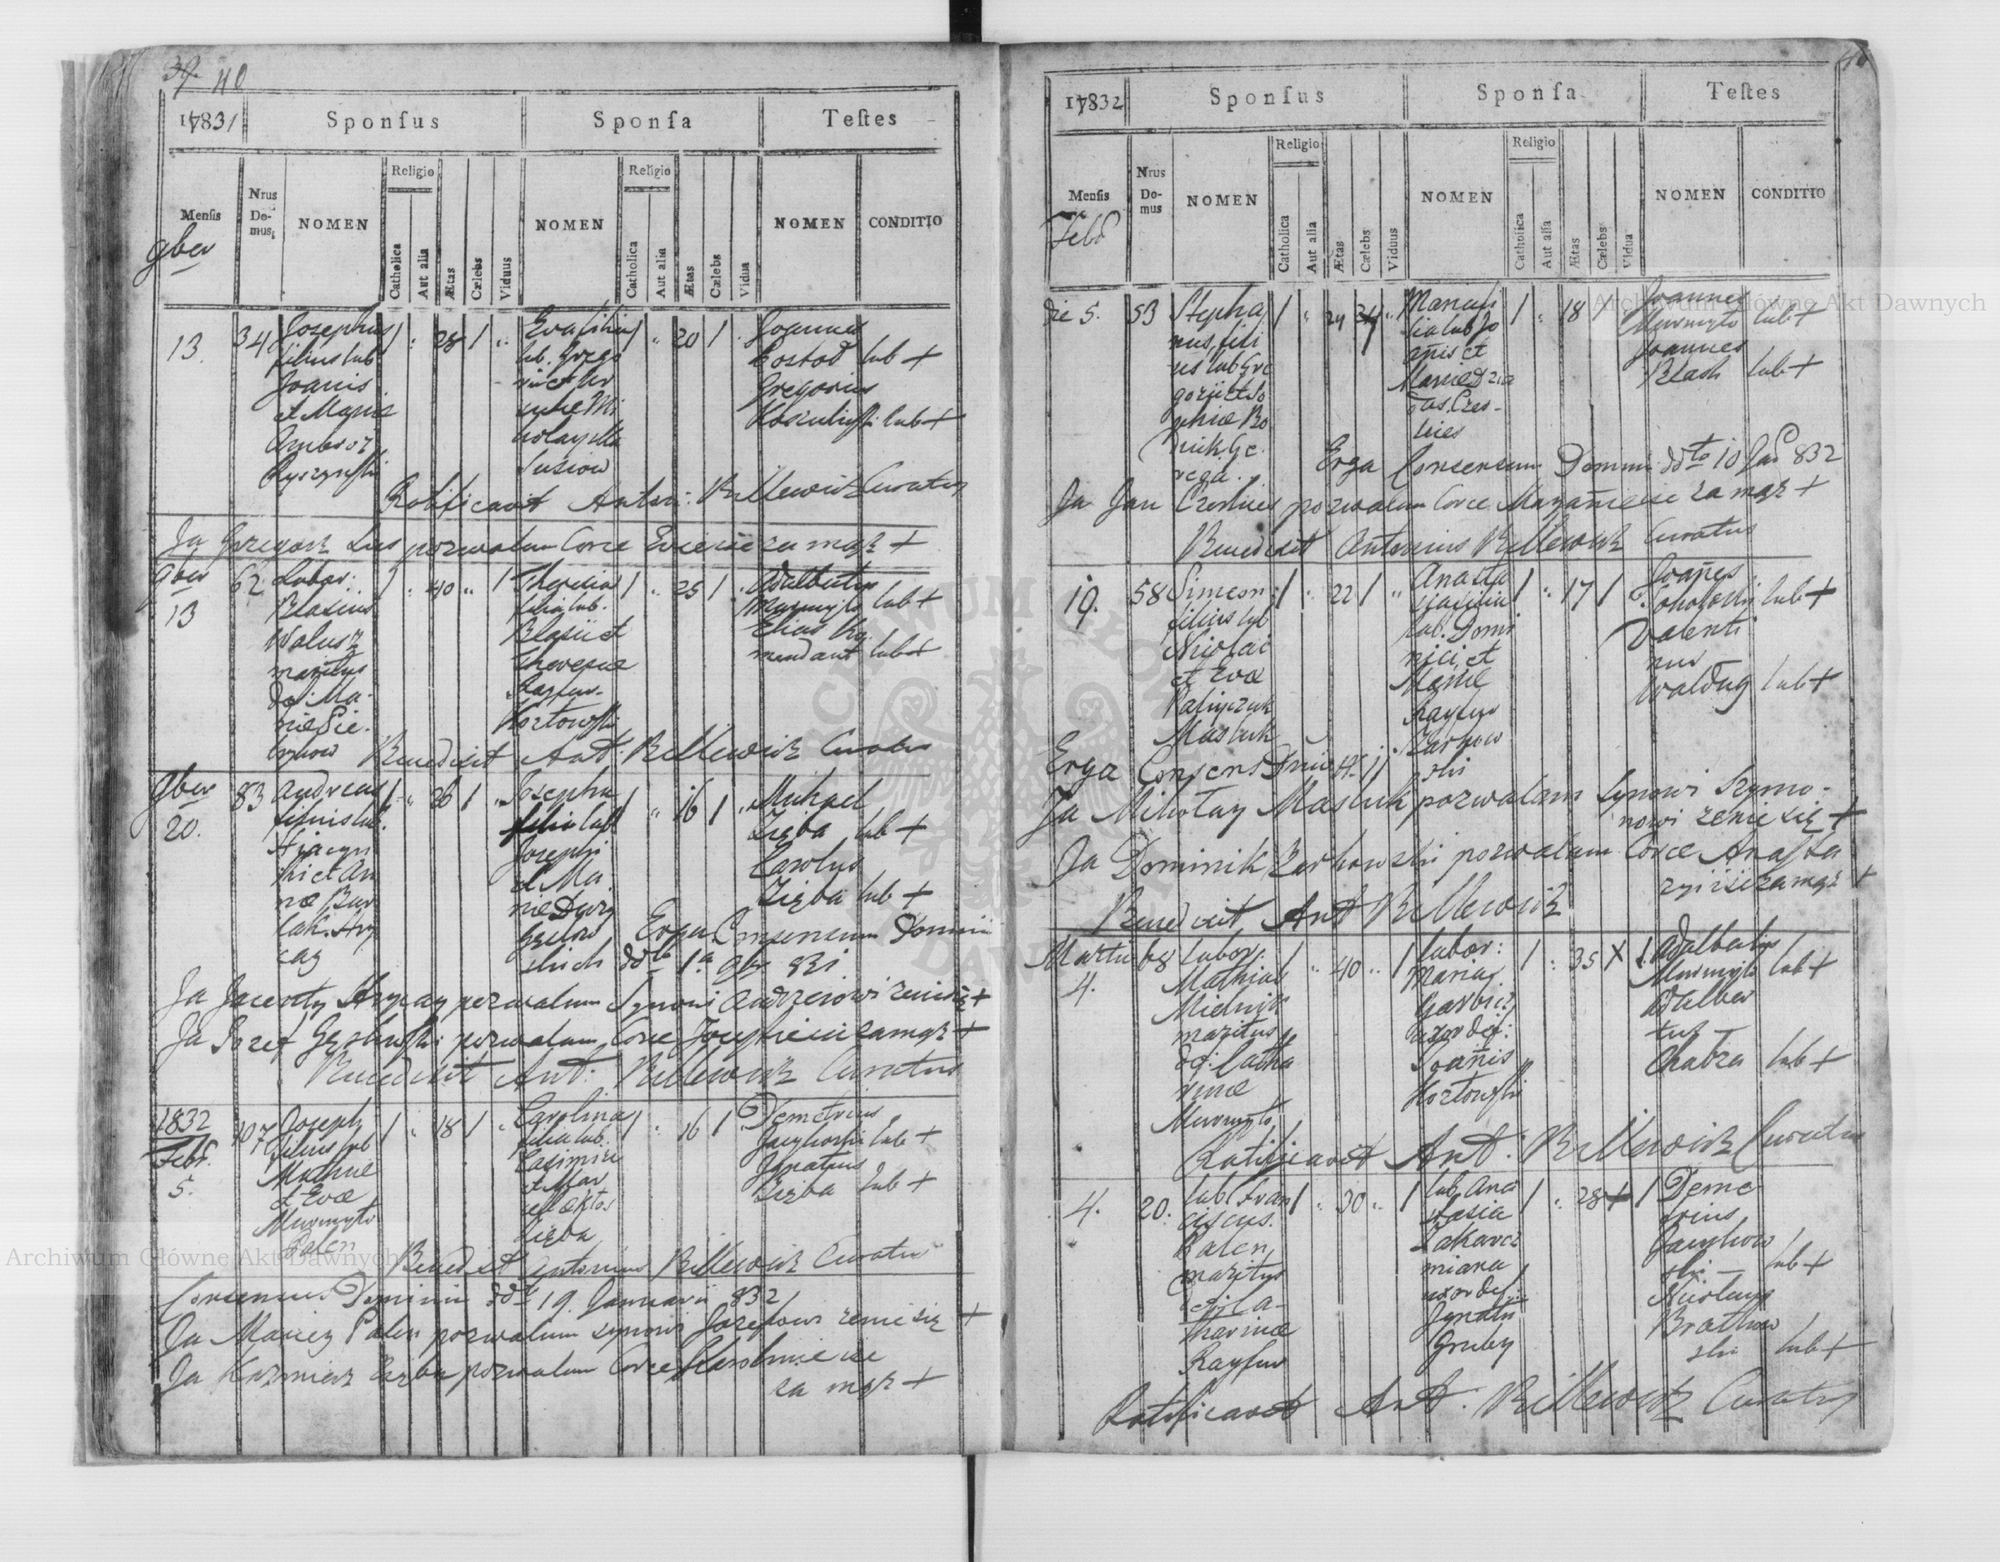 39. 40
17831
Sponſus
Sponſa
Teſtes
Menſis
Nrus Do- mus,
NOMEN
Religio
Catholica
Aut alia
Ætas
Cælebs
Viduus
NOMEN
Religio
Catholica
Aut alia
Ætas
Cælebs
Vidua
NOMEN
CONDITIO
9ber
13.
34
Josephus
filius lab
Joanis
et Mariæ
Ambroż
Ryszynski
28
Eva filia
lab. Grego
rii et
Lusiow
20
Joannes
Kostod lab +
Gregorius
lab +
Ratificavit Anton: Billewicz Curatus
Ja Grzegorz Lus pozwalam Corce Ewie iść za mąż +
9ber
13
62
Labor:
Blasius
Walusz
maritus
def: Ma-
riæ Sie-
40
Theresia
filia lab.
Blasii et
Theresiæ
Rayfur-
Kozłowski
25
Adalbertus
Murmyło lab +
Elias Ko
mendant lab +
Benedixit Ant: Billewicz Curatus
9ber
20.
83
Andreas
filius lab.
Hiacyn
thi et An
næ Bur
lak. Hry
cay
26
Josepha
filia lab
Josephi
et Ma-
riæ
16
Michael
Zięba lab +
Carolus
Zięba lab +
Erga Consensum Dominii
ddto 1a 9br 831
Ja Jacenty Hrycay pozwalam Synowi Andrzeiowi żenić się +
Ja Jozef pozwalam Corce Jozefie iść za mąż +
Benedixit Ant: Billewicz Curatus
1832
Febr.
5.
107
Joseph
filius lab
Mathiæ
et Evæ
Murmyło
Palen
18
Carolina
filia lab.
Casimiri
et Mar
Zięba
16
Demetrius
Jacykowski lab +
Ignatius
Zięba lab +
Benedixit Antonius Billewicz Curatus
Consensus Dominii ddto 19. Januarii 832
Ja Maciey Palen pozwalam synowi Jozefowi żenić się +
Ja Kazimierz Zięba pozwalam Corce Karolinie iść
za mąż +
17832
Sponſus
Sponſa
Teſtes
Menſis
Nrus Do- mus
NOMEN
Religio
Catholica
Aut alia
Ætas
Cælebs
Viduus
NOMEN
Religio
Catholica
Aut alia
Ætas
Cælebs
Vidua
NOMEN
CONDITIO
Febr
die 5.
53
Stepha
nus, fili
us lab Gre
gorii et So
phiæ Bo
niuk. Ge
rega.
24
Maria fi
lia lab Jo
annis et
Mariæ Dzia
das. Czes-
nies
18
Joannes
Murmyło lab +
Joannes
Blach lab +
Erga Consensum Dominii ddto 10 Jan 832
Ja Jan pozwalam Corce Maryannie iść za mąż +
Benedixit Antonius Billewicz Curatus
19.
58
Simeon
filius lab
Nicolai
et Evæ
Masluk
22
Anasta
sia filia
lab. Domi
nici et
Mariæ
Rayfur
Żarkow
ski
17
Joanes
lab +
Valenti
nus
Waldug lab +
Erga Consens
Ja Mikołay Masluk pozwalam Synowi Szymo-
nowi żenić się +
Ja Dominik Żarkowski pozwalam Corce Anasta
zyi iść za mąż +
Benedixit Ant Billewicz
Martii
4.
68
Labor:
Mathias
Mielnik
maritus
def: Catha
rinæ
Murmyło
40
Labor:
Maria
Garbicz
uxor def:
Joanis
Kozłowski
35
Adalbertus
Murmyło lab +
Adalber
tus
Chabza lab +
Ratificavit Ant: Billewicz Curatus
4.
20.
lab Fran
ciscus
Palen
maritus
def: Ca-
tharinæ
Rayfur
30
lab. Ana
stasia
Zakarcz
miana
uxor def:
Ignatii
Gruby
28
Deme
trius
Jacykow
ski lab +
Nicolaus
Bratkow
ski lab +
Ratificavit Ant: Billewicz Curatus
Archiwum Główne Akt Dawnych
Archiwum Główne Akt Dawnych